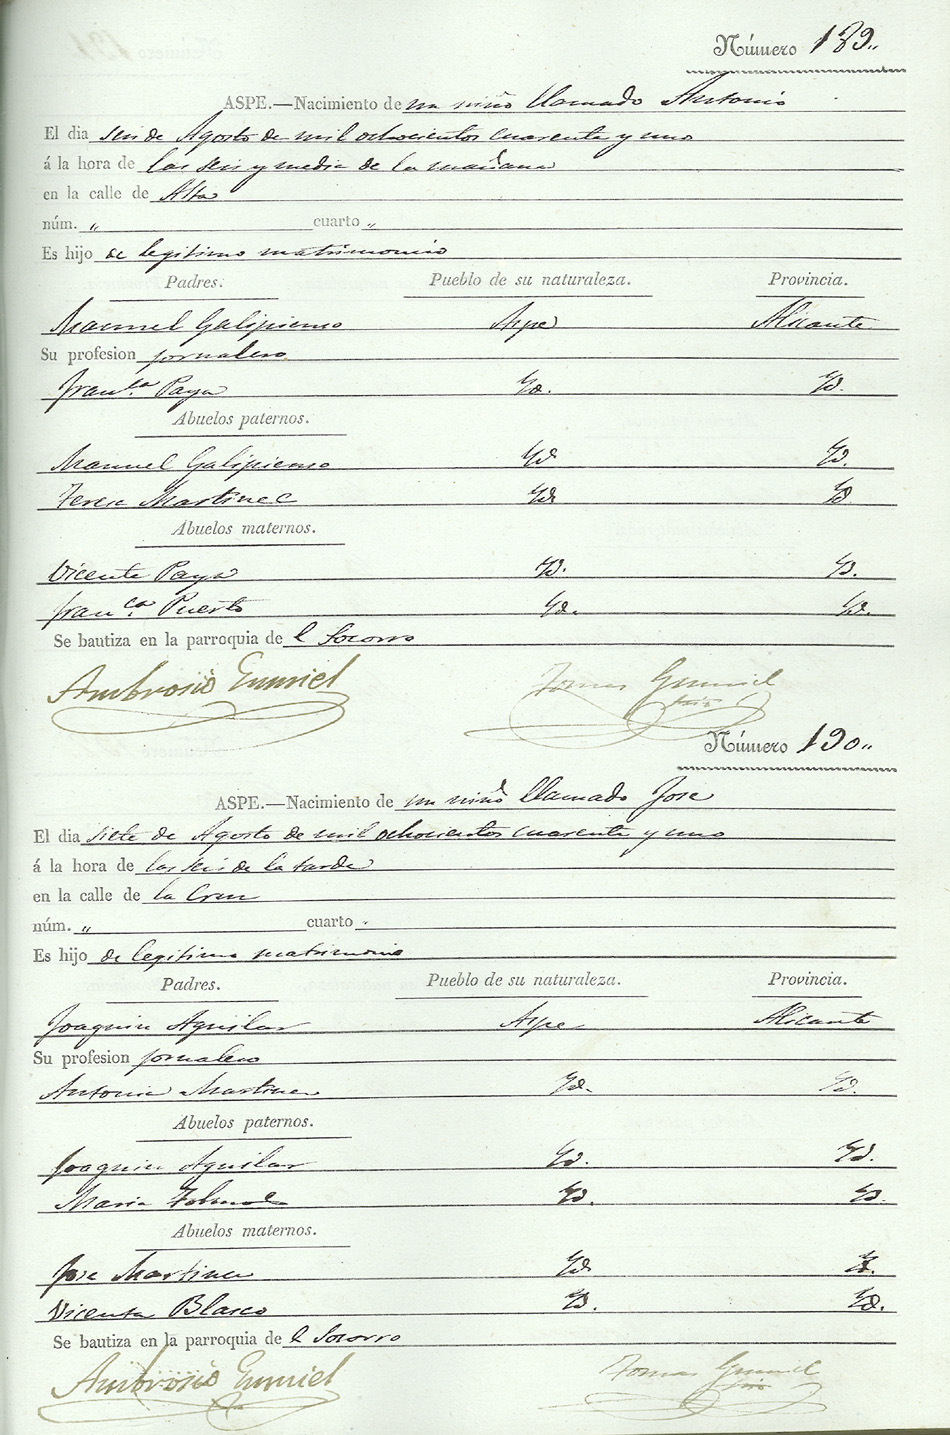 Número 189..
ASPE.—Nacimiento de un niño llamado Antonio
El dia seis de Agosto de mil ochocientos cuarenta y uno
á la hora de las seis y media de la mañana
en la calle de Alta
núm. „ cuarto „
Es hijo de legitimo matrimonio
Padres. Pueblo de su naturaleza. Provincia.
Manuel Galipienso Aspe Alicante
Su profesion jornalero
Fran.ca Paya Yd. Yd.
Abuelos paternos.
Manuel Galipienso Yd Yd.
Teresa Martinez Yd Yd
Abuelos maternos.
Vicente Paya Yd. Yd.
Fran.ca Puerto Yd. Yd.
Se bautiza en la parroquia de l Socorro
Ambrosio Gumiel Tomas Gumiel
Número 190..
ASPE.—Nacimiento de un niño llamado Jose
El dia siete de Agosto de mil ochocientos cuarenta y uno
á la hora de las seis de la tarde
en la calle de la Cruz
núm. „ cuarto „
Es hijo de legitimo matrimonio
Padres. Pueblo de su naturaleza. Provincia.
Joaquin Aguilar Aspe Alicante
Su profesion jornalero
Antonia Martinez Yd. Yd.
Abuelos paternos.
Joaquin Aguilar Yd. Yd.
Maria Yd. Yd.
Abuelos maternos.
Jose Martinez Yd Yd.
Vicenta Blasco Yd. Yd.
Se bautiza en la parroquia de l Socorro
Ambrosio Gumiel Tomas Gumiel